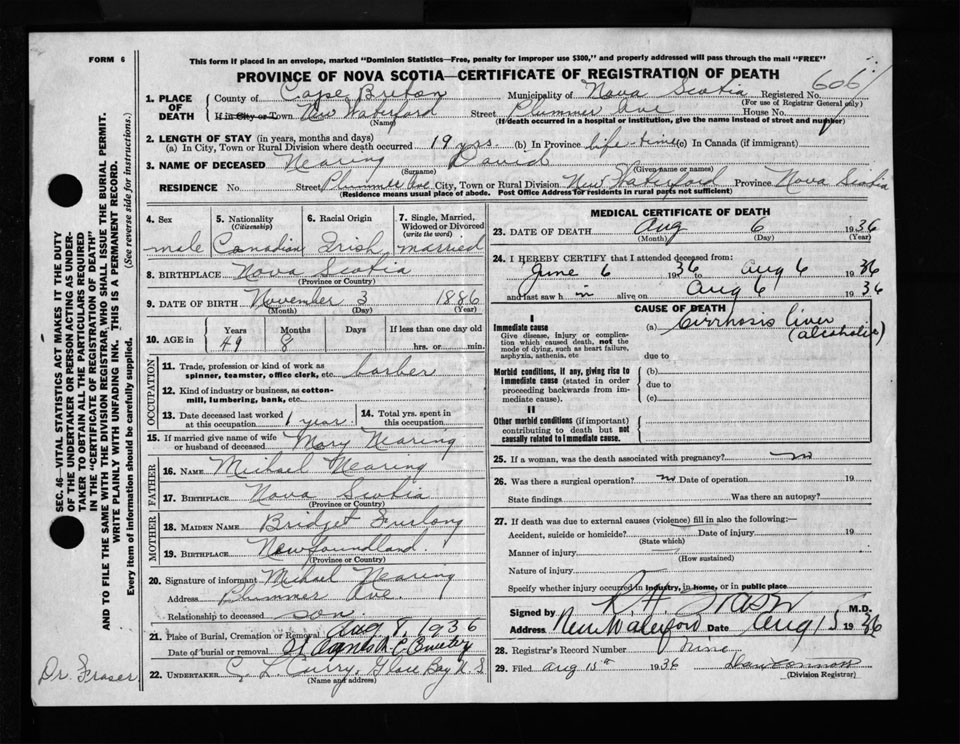 FORM 6
This form if placed in an envelope, marked "Dominion Statistics—Free, penalty for improper use $300," and properly addressed will pass through the mail "FREE"
PROVINCE OF NOVA SCOTIA—CERTIFICATE OF REGISTRATION OF DEATH
606
1. PLACE OF DEATH County of Cape Breton Municipality of Nova Scotia Registered No.
(For use of Registrar General only)
If in City or Town New Waterford Street Plummer Ave House No.
(Name) (If death occurred in a hospital or institution, give the name instead of street and number)
2. LENGTH OF STAY (in years, months and days)
(a) In City, Town or Rural Division where death occurred 19 yrs. (b) In Province life-time (c) In Canada (if immigrant)
3. NAME OF DECEASED Nearing David
(Surname) (Given name or names)
RESIDENCE No. Street Plummer Ave City, Town or Rural Division New Waterford Province Nova Scotia
(Residence means usual place of abode. Post Office Address for residents in rural parts not sufficient)
SEC. 46—VITAL STATISTICS ACT MAKES IT THE DUTY
OF THE UNDERTAKER OR PERSON ACTING AS UNDER-
TAKER TO OBTAIN ALL THE PARTICULARS REQUIRED
IN THE "CERTIFICATE OF REGISTRATION OF DEATH"
AND TO FILE THE SAME WITH THE DIVISION REGISTRAR, WHO SHALL ISSUE THE BURIAL PERMIT.
WRITE PLAINLY WITH UNFADING INK. THIS IS A PERMANENT RECORD.
Every item of information should be carefully supplied. (See reverse side for instructions.)
4. Sex 5. Nationality (Citizenship) 6. Racial Origin 7. Single, Married, Widowed or Divorced (write the word)
male Canadian Irish married
8. BIRTHPLACE Nova Scotia
(Province or Country)
9. DATE OF BIRTH November 3 1886
(Month) (Day) (Year)
10. AGE in Years Months Days If less than one day old
49 8 hrs. or min.
OCCUPATION
11. Trade, profession or kind of work as
spinner, teamster, office clerk, etc. barber
12. Kind of industry or business, as cotton-
mill, lumbering, bank, etc.
13. Date deceased last worked at this occupation 1 year. 14. Total yrs. spent in this occupation
15. If married give name of wife
or husband of deceased Mary Nearing
FATHER
16. NAME Michael Nearing
17. BIRTHPLACE Nova Scotia
(Province or Country)
MOTHER
18. MAIDEN NAME Bridget Furlong
19. BIRTHPLACE Newfoundland.
(Province or Country)
20. Signature of informant Michael Nearing
Address Plummer Ave.
Relationship to deceased son.
21. Place of Burial, Cremation or Removal Aug 8, 1936
Date of burial or removal St Agnes R. C. Cemetery
22. UNDERTAKER C. L. Curry, Glace Bay N. S
(Name and address)
Dr. Fraser
MEDICAL CERTIFICATE OF DEATH
23. DATE OF DEATH Aug 6 1936
(Month) (Day) (Year)
24. I HEREBY CERTIFY that I attended deceased from:
June 6 1936 to Aug 6 1936
and last saw him alive on Aug 6 1936
CAUSE OF DEATH
I
Immediate cause (a) Cirrhosis liver
(alcoholic)
Give disease, injury or complica-
tion which caused death, not the
mode of dying, such as heart failure,
asphyxia, asthenia, etc due to
Morbid conditions, if any, giving rise to (b)
immediate cause (stated in order due to
proceeding backwards from im-
mediate cause). (c)
II
Other morbid conditions (if important)
contributing to death but not
causally related to immediate cause.
25. If a woman, was the death associated with pregnancy? no
26. Was there a surgical operation? no Date of operation 19
State findings Was there an autopsy?
27. If death was due to external causes (violence) fill in also the following:—
Accident, suicide or homicide? Date of injury 19
(State which)
Manner of injury
(How sustained)
Nature of injury
Specify whether injury occurred in industry, in home, or in public place
Signed by Fraser M.D.
Address New Waterford Date Aug 15 1936
28. Registrar's Record Number Nine
29. Filed Aug 15th 1936
(Division Registrar)